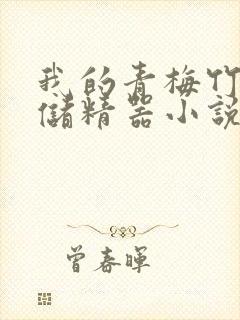 我的青梅竹
儲精器小說
曾春暉